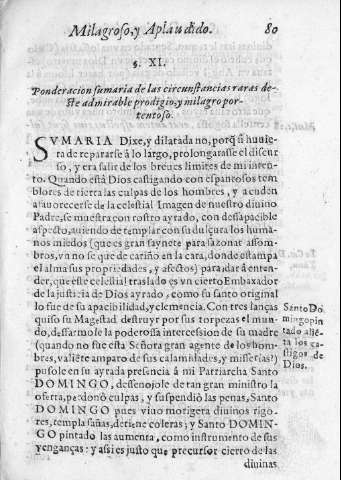 Milagroso, y Aplaudido. 80
§. XI.
Ponderacion sumaria de las circunstancias raras de-
ste admirable prodigio, y milagro por-
tentoso.
SVMARIA Dixe, y dilatada no, porq̃ si huuie-
ra de repararse à lo largo, prolongarasse el discur
so, y era salir de los breues limites de mi inten-
to. Quando està Dios castigando con espantosos tem
blores de tierra las culpas de los hombres, y acuden
a fauorecerse de la celestial Imagen de nuestro diuino
Padre, se muestra con rostro ayrado, con desapacible
aspecto, auiendo de templar con su dulçura los huma-
nos miedos (que es gran saynete para sazonar assom-
bros, vn no se que de cariño en la cara, donde estampa
el alma sus propriedades, y afectos) para dar à enten-
der, que este celestial traslado es vn cierto Embaxador
de la justicia de Dios ayrado, como su santo original
lo fue de su apacibilidad, y clemencia. Con tres lanças
quiso su Magestad destruyr por sus torpezas el mun-
do, desarmole la poderosa intercession de su madre
(quando no fue esta Señora gran agente de los hom-
bres, valiẽte amparo de sus calamidades, y misserias?)
pusole en su ayrada presencia à mi Patriarcha Santo
DOMINGO, dessenojole de tan gran ministro la
oferta, perdonò culpas, y suspendiò las penas, Santo
DOMINGO pues viuo mortigera diuinos rigo-
res, templa sañas, detiene coleras; y Santo DOMIN-
GO pintado las aumenta, como instrumento de sus
venganças: y assi es justo que precursor cierto de las
diuinas
Santo Do
mingo pin
tado aliẽ-
ta los ca-
stigos de
Dios.